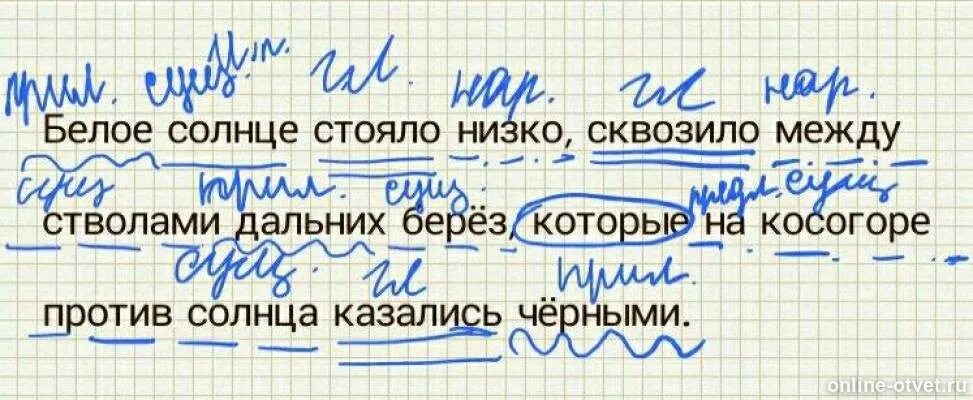 прил. сущ. И.п. гл. нар. гл нар.
Белое солнце стояло низко, сквозило между
сущ прил. сущ. предл. сущ
стволами дальних берёз, которые на косогоре
сущ. гл прил.
против солнца казались чёрными.
online-otvet.ru